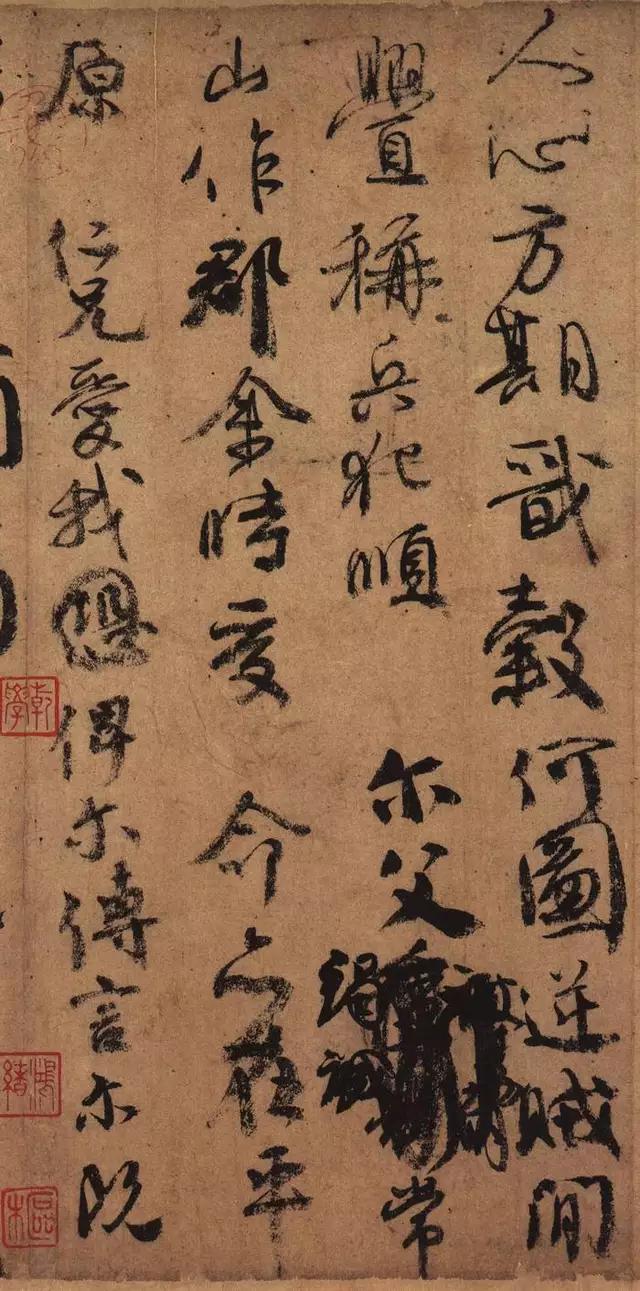 人心方期戩穀何圖逆賊閒
舋稱兵犯順尔父竭誠常
山作郡余時受命亦在平
原仁兄愛我俾尔傳言尔既
乾
學